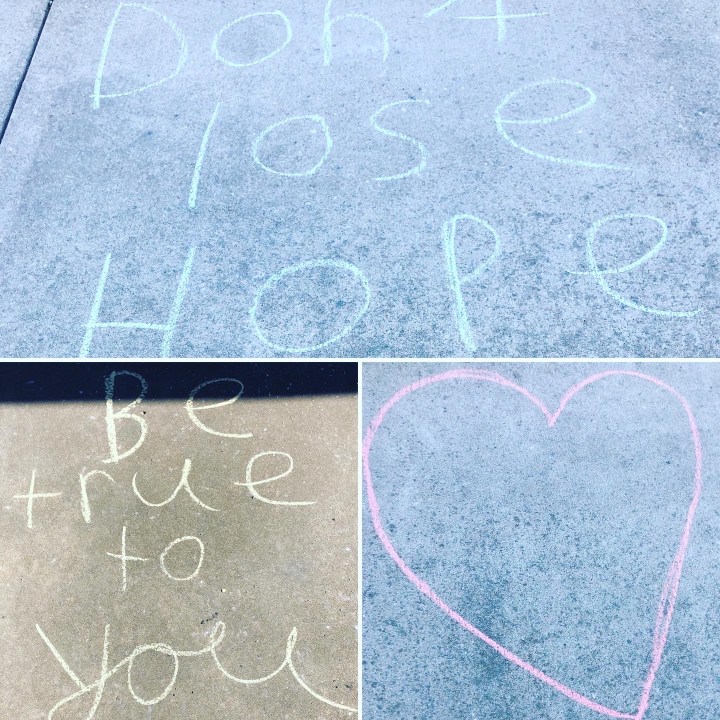 Don't
lose
Hope
Be
true
to
you